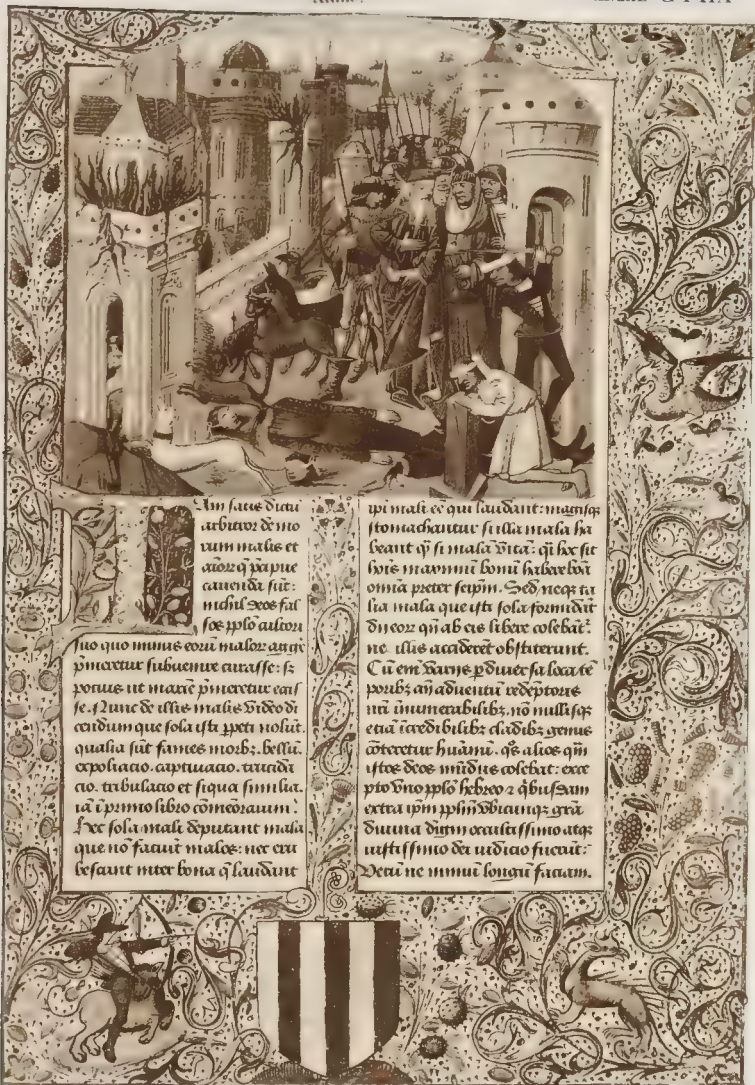 Iam satis dictū
arbitror de mo
rum malis et
aīorꝫ q̄ p̄cipue
cauenda sūt:
nichil deos fal
sos pplo cultori
suo quo minus eorū malorꝫ aggͤ
p̄meretur subuenire curasse: sꝫ
potius ut maxīe p̄meretur egis
se. Nunc de illis malis video di
cendum que sola isti ꝑpeti nolūt.
qualia sūt fames morbꝫ. bellū.
expoliacio. captiuacio. trucida
cio. tribulacio et siqua similia.
iā ī primo libro cōmeorauim⁹.
Hec sola mali deputant mala
que nō faciūt malos: nec eru
bescunt inter bona q̄ laudant
ipi mali eē qui laudant: magisqꝫ
stomachantur si illa mala ha
beant q̄ꝫ si malā vitā: q̄i hoc sit
hoīs maximū bonū habere boā
omīa preter seip̄m. Sed neqꝫ ta
lia mala que isti sola formidāt
dii eorꝫ qn̄ ab eis libere colebāt²
ne illis accideret obstiterunt.
Cū em̄ variis ꝑ diuersa loca tē
poribꝫ an̄ aduentū redeptoris
nr̄i īnumerabilibꝫ. nō nullisqꝫ
etiā īcredibilibꝫ cladibꝫ genus
cōteretur hūanū. q̄s alios qm̄
istos deos mūdus colebat: exce
pto vno pplo hebreo ⁊ q̄busdam
extra ip̄m pplm̄ vbicunqꝫ grā
diuina digni occultissimo atqꝫ
iustissimo dei iudicio fuerūt:
Verū ne nimiū longū faciam.